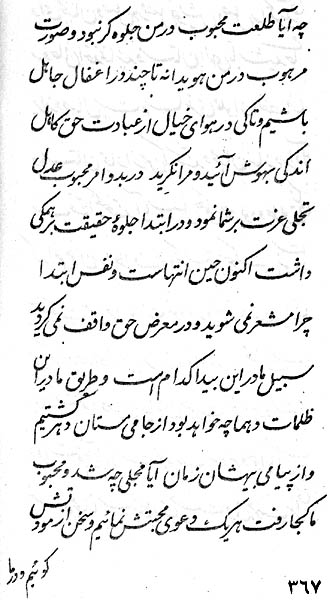 چه آیا طلعت محبوب در من جلوه‌گر نبود و صورت
مرهوب در من هویدا نه تا چند در اغفال جاهل
باشیم و تا کی در هوای خیال از عبادت حق کاهل
اندکی بهوش آئید و مرا نگرید در بدو امر محبوب عدل
تجلی عزت بر شما نمود و در ابتدا جلوهٔ حقیقت بر همگی
داشت اکنون حین انتهاست و نفس ابتدا
چرا مشعر نمی شوید و در معرض حق واقف نمی گردید
سبیل ما در این بیدا کدام است و طریق ما در این
ظلمات دهما چه خواهد بود از جامی مستان دهر گشتیم
و از پیامی بیهشان زمان آیا مجلی چه شد و محبوب
ما کجا رفت هر یک دعوی محبتش نمائیم و سخن از مودتش
گوئیم و در ما
۳۶۷